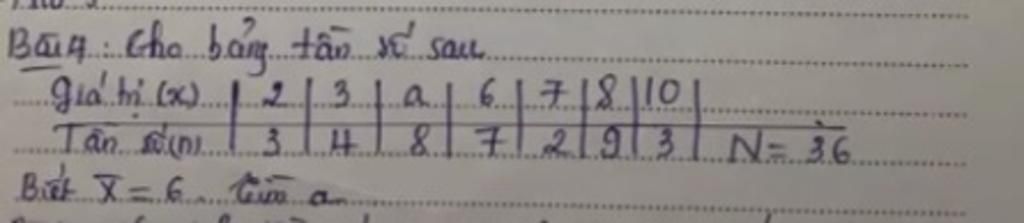 Bài 4: Cho bảng tần số sau
giá trị (x) | 2 | 3 | a | 6 | 7 | 8 | 10 |
Tần số (n) | 3 | 4 | 8 | 7 | 2 | 9 | 3 | N = 36
Biết X̄ = 6. tìm a